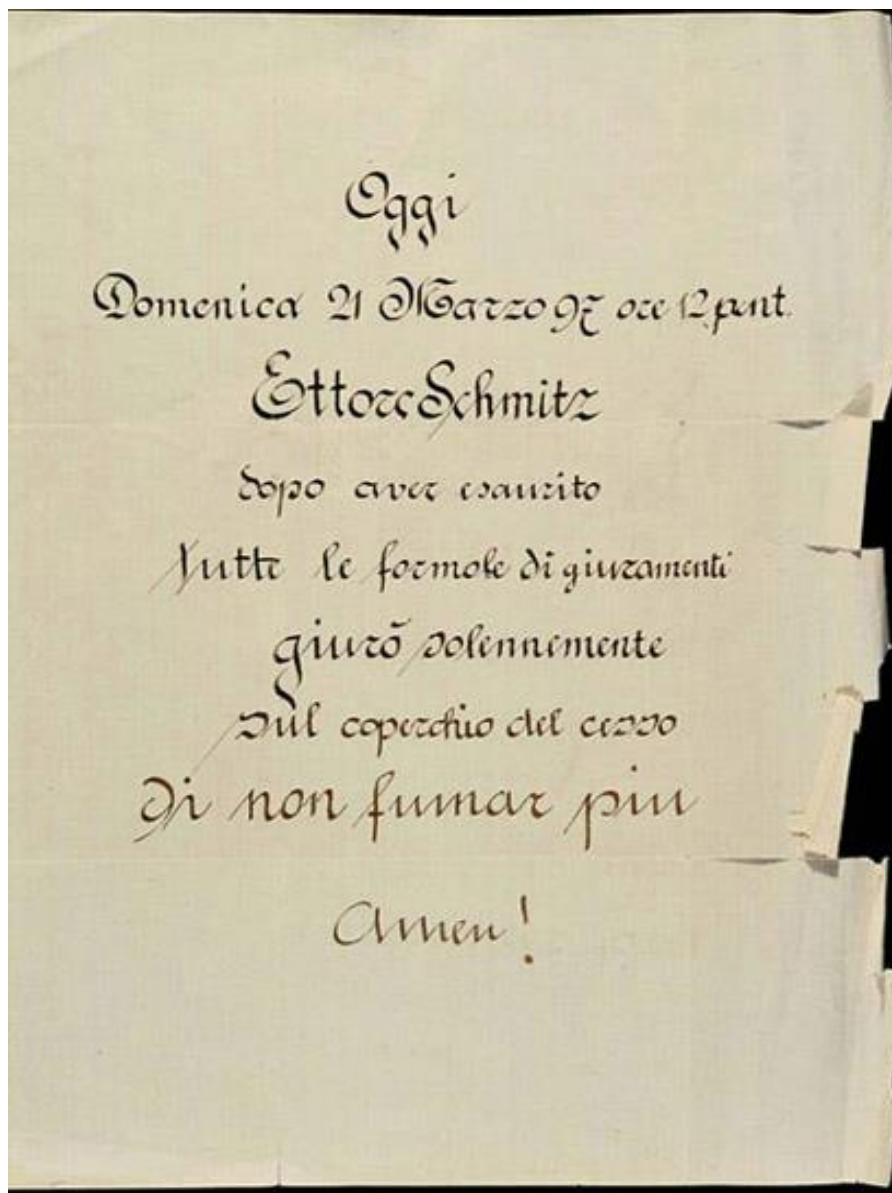 Oggi
Domenica 21 Marzo 97 ore 12 punt.
Ettore Schmitz
dopo aver esaurito
tutte le formole di giuramenti
giurò solennemente
sul coperchio del cesso
di non fumar piu
Amen!